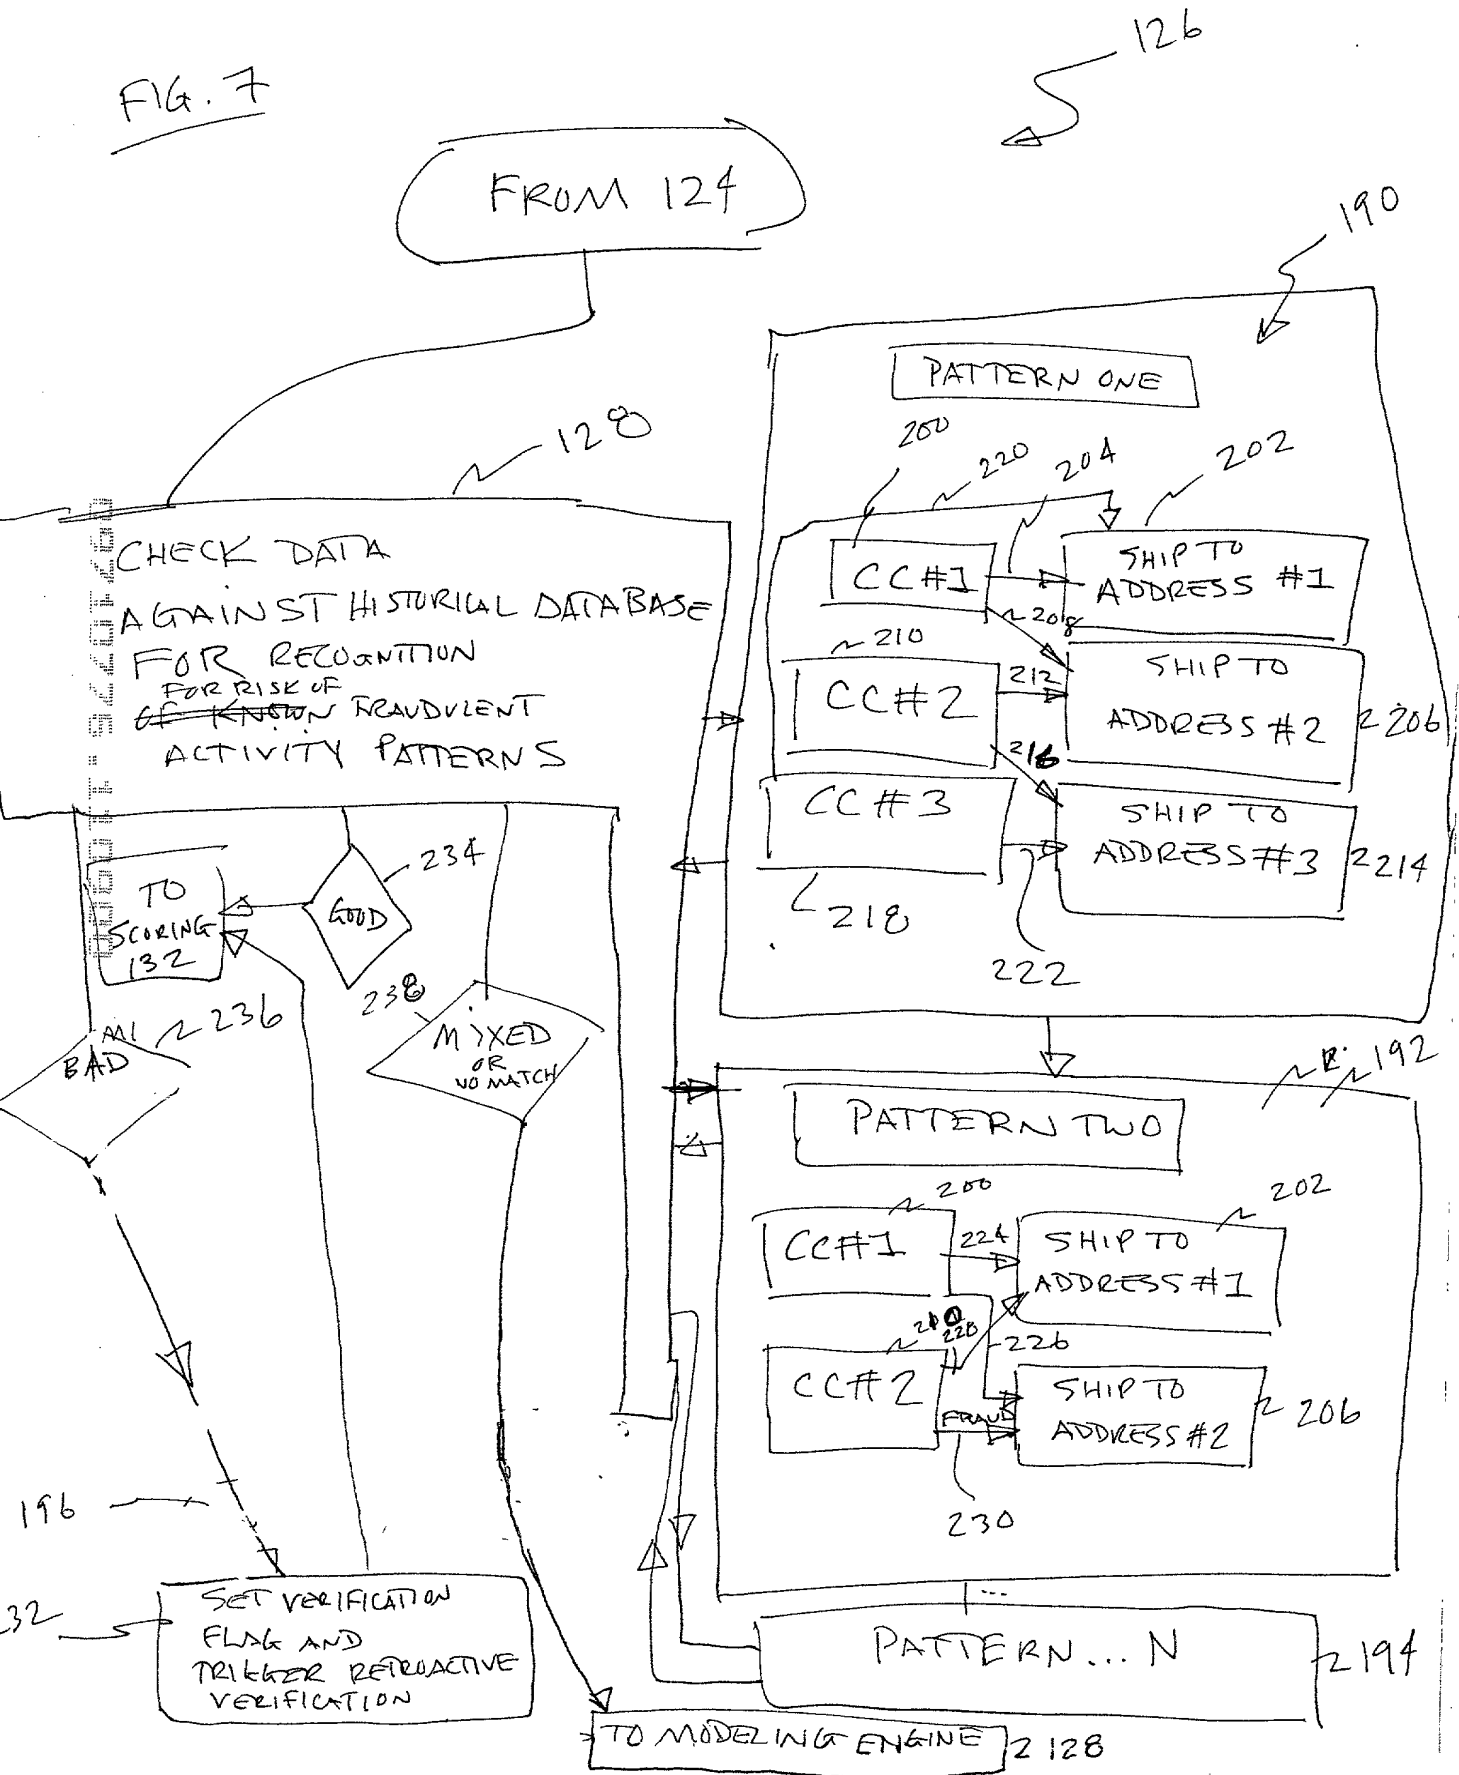 FIG. 7
126
FROM 124
190
PATTERN ONE
128
200
220
204
202
CHECK DATA
AGAINST HISTORICAL DATABASE
FOR RECOGNITION
FOR RISK OF
OF KNOWN FRAUDULENT
ACTIVITY PATTERNS
CC#1
SHIP TO
ADDRESS #1
208
210
CC#2
212
SHIP TO
ADDRESS #2
206
216
CC#3
SHIP TO
ADDRESS #3
214
218
222
TO
SCORING
132
GOOD
234
236
BAD
238
MIXED
OR
NO MATCH
192
PATTERN TWO
200
202
CC#1
224
SHIP TO
ADDRESS #1
226
CC#2
FRAUD
SHIP TO
ADDRESS #2
206
230
196
SET VERIFICATION
FLAG AND
TRIGGER RETROACTIVE
VERIFICATION
...
PATTERN... N
194
TO MODELING ENGINE
128